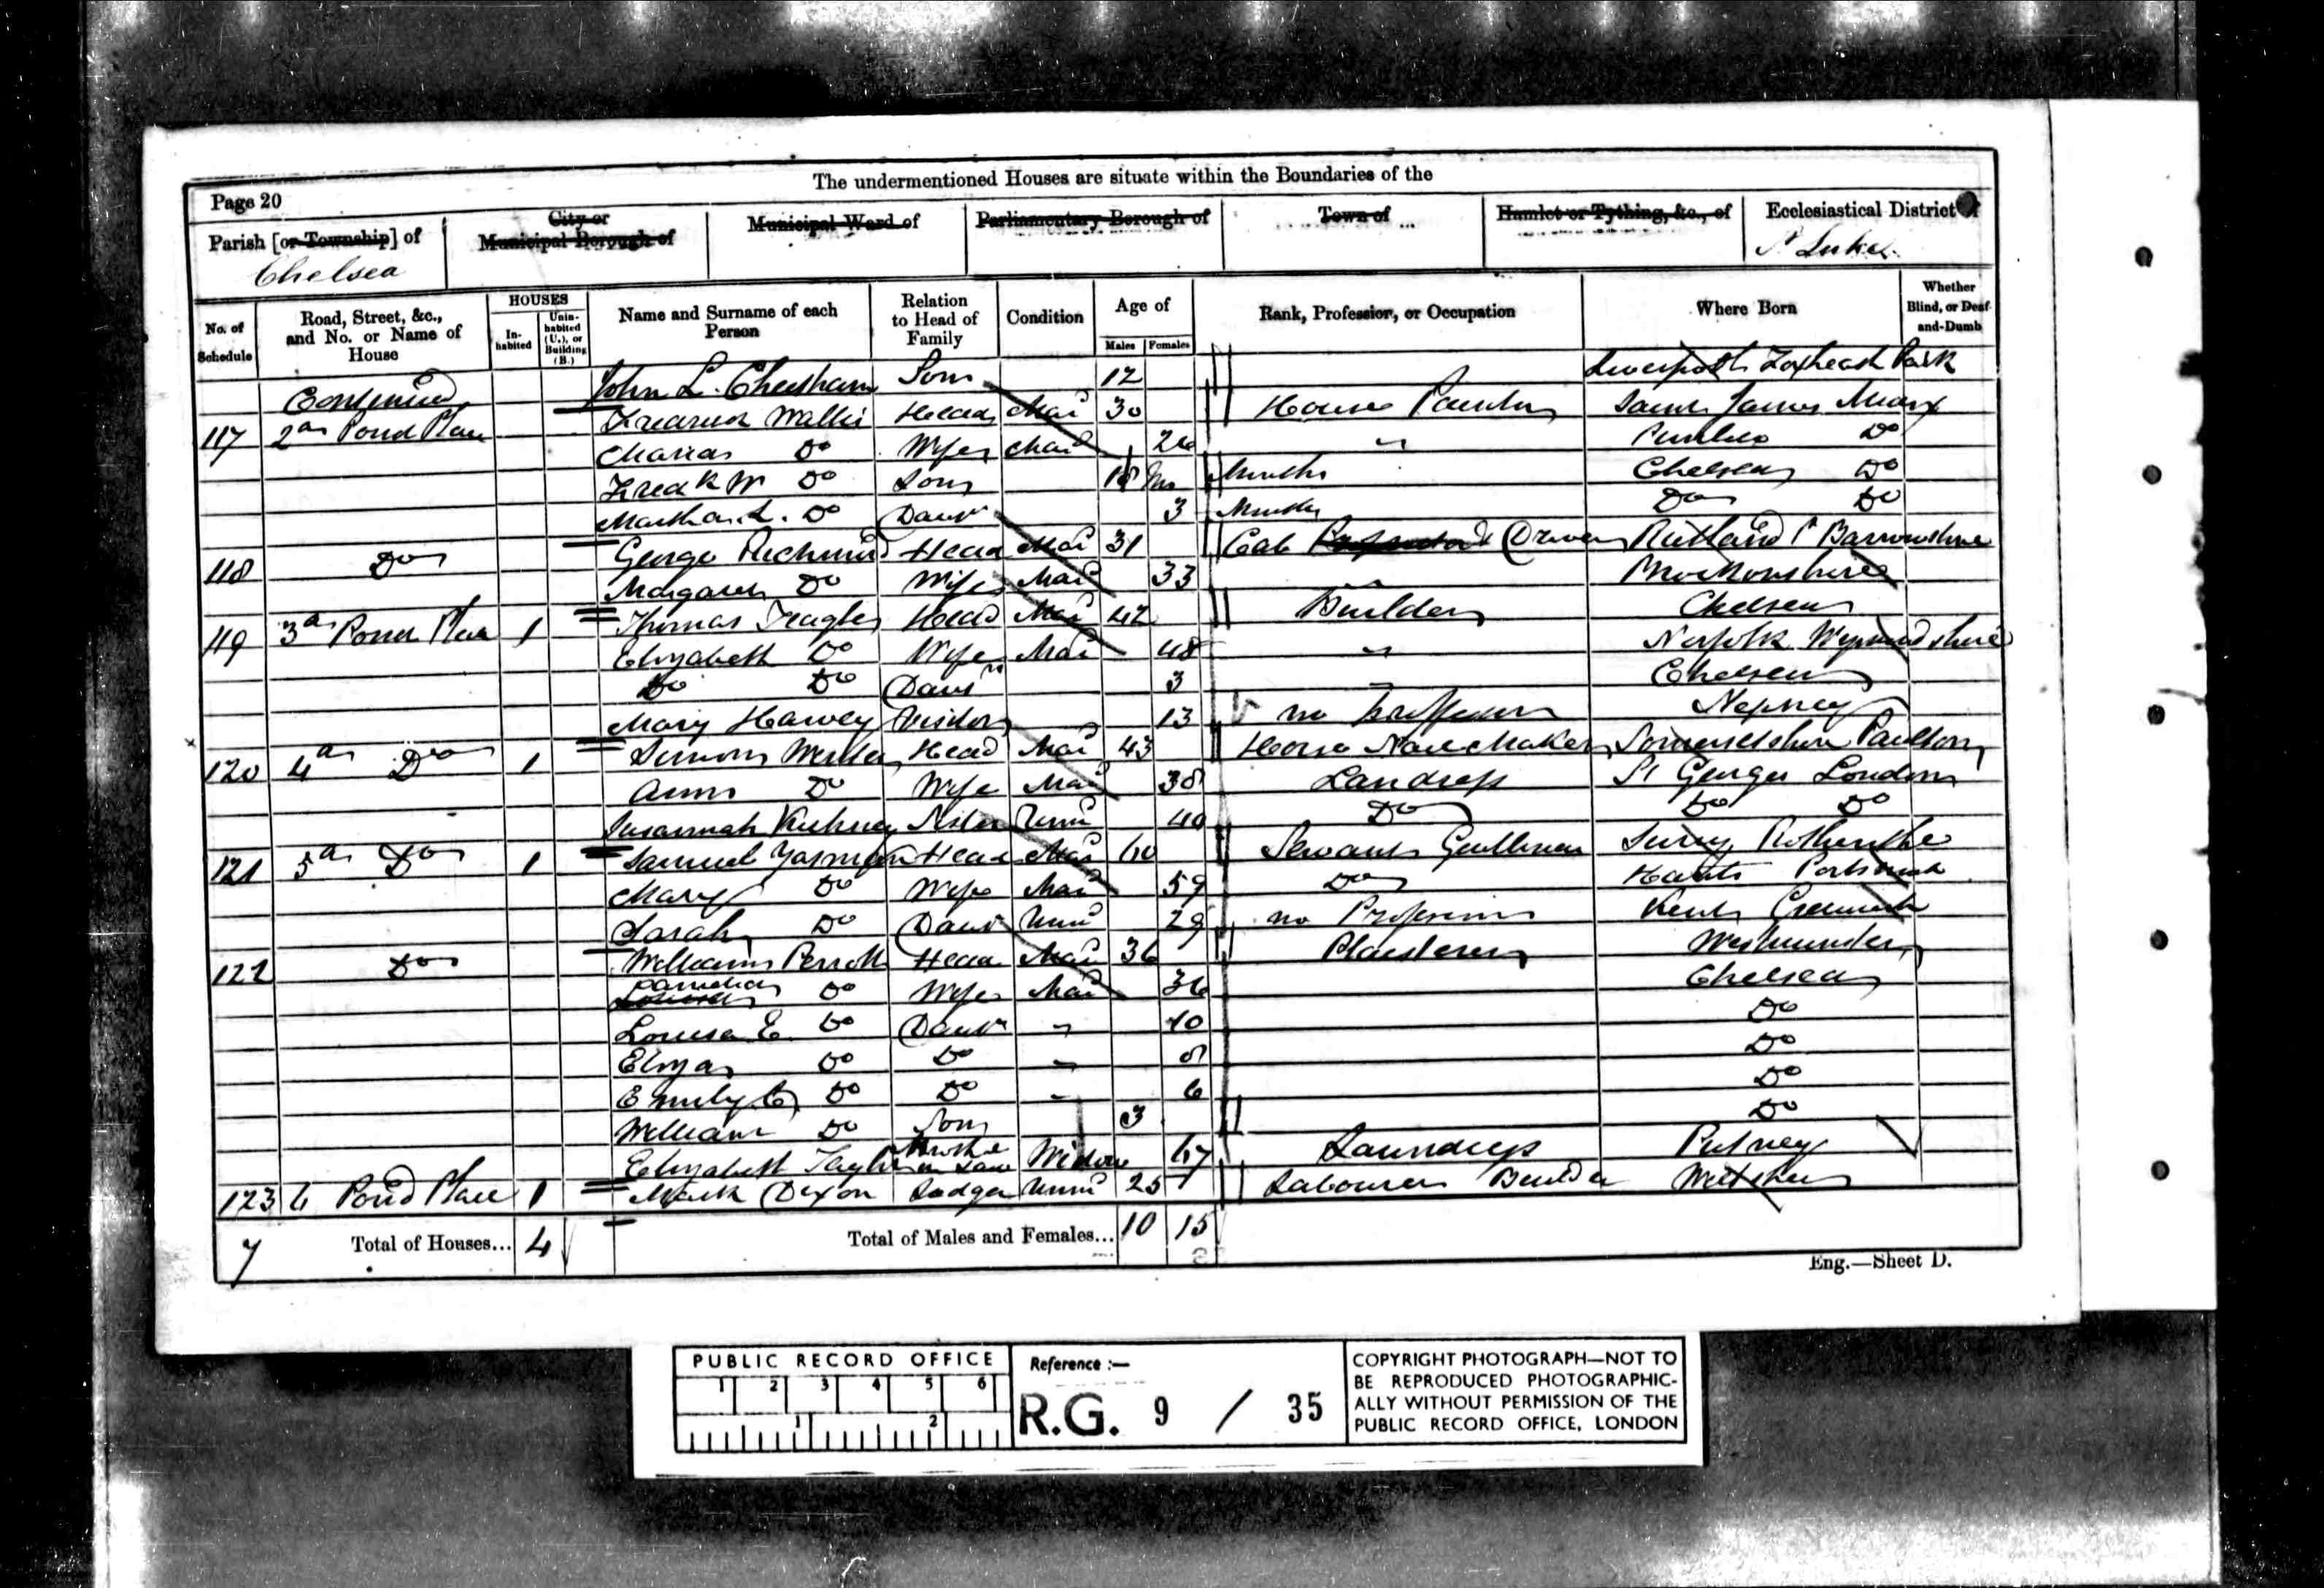 The undermentioned Houses are situate within the Boundaries of the
Page 20
Parish [or Township] of
Chelsea
City or Municipal Borough of
Municipal Ward of
Parliamentary Borough of
Town of
Hamlet or Tything, &c., of
Ecclesiastical District of
St Lukes
No. of Schedule
Road, Street, &c., and No. or Name of House
HOUSES
In-habited
Unin-habited (U.), or Building (B.)
Name and Surname of each Person
Relation to Head of Family
Condition
Age of
Males
Females
Rank, Profession, or Occupation
Where Born
Whether Blind, or Deaf-and-Dumb
Continued John L. Cheetham Son 12 Liverpool Park
117 2a Pond Place Frederick Wallis Head Mar 30 House Painter Saint James Middx
Do Wife Mar 26 " Pimlico Do
Fredk W Do Son 18 Ms Months Chelsea Do
Martha L. Do Daur 3 Months Do Do
118 Do George Head Mar 31 Cab Driver Rutland
Margaret Do Wife Mar 33 "
119 3a Pond Place 1 Thomas Head Mar 42 Builder Chelsea
Elizabeth Do Wife Mar 48 " Norfolk
Do Do Daur 3 " Chelsea
Mary Harvey Visitor 13 no Profession
120 4a Do 1 Head Mar 43 Horse Nail Maker Somersetshire Paulton
Ann Do Wife Mar 38 Landress St Georges London
Susannah Sister Unm 40 Do Do Do
121 5a Do 1 Samuel Head Mar 60 Servant Surrey Rotherithe
Mary Do Wife Mar 59 Do Hants Portsmouth
Sarah Do Daur Unm 29 no Profession Kent Greenwich
122 Do William Perrott Head Mar 36 Plaisterer Westminster
Do Wife Mar 36 Chelsea
Louisa E. Do Daur " 10 Do
Eliza Do Do " 8 Do
Emily C Do Do " 6 Do
William Do Son 3 Do
Elizabeth Mother in Law Widow 67 Laundress Putney
123 6 Pond Place 1 Mark Dixon Lodger Unm 25 Labourer Builder
7 Total of Houses... 4 Total of Males and Females... 10 15
Eng.—Sheet D.
PUBLIC RECORD OFFICE
1 2 3 4 5 6
1 2
Reference :—
R.G. 9 / 35
COPYRIGHT PHOTOGRAPH—NOT TO
BE REPRODUCED PHOTOGRAPHIC-
ALLY WITHOUT PERMISSION OF THE
PUBLIC RECORD OFFICE, LONDON